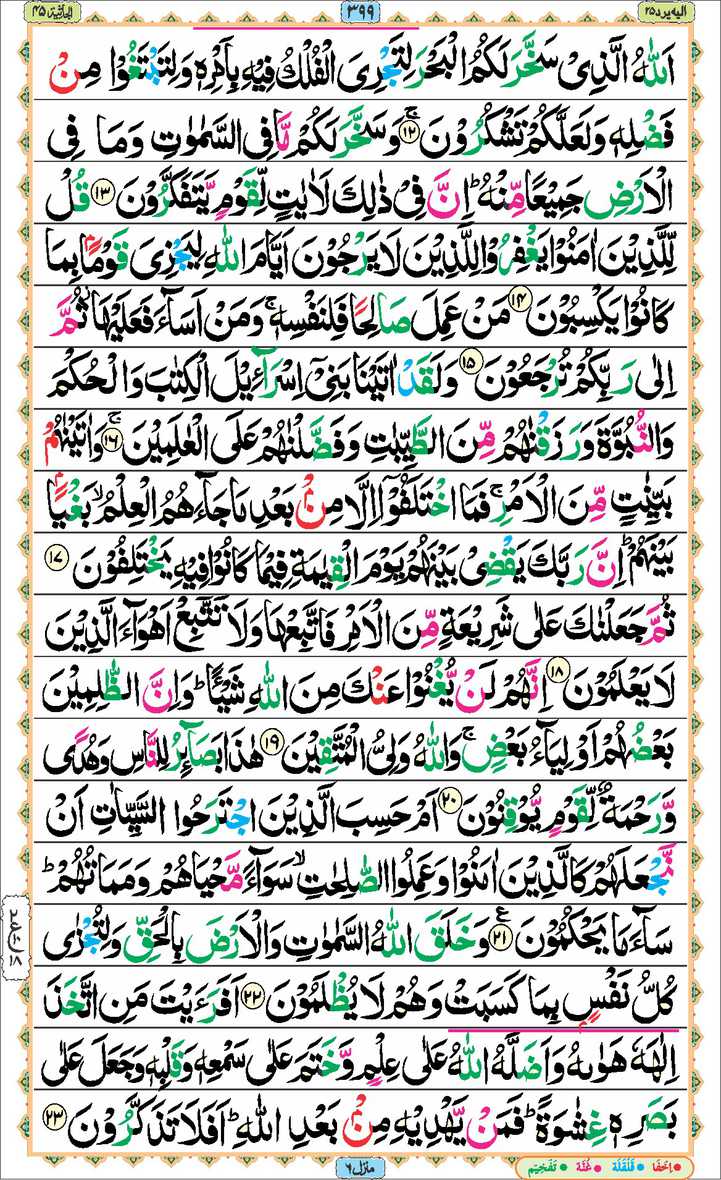 اليه يرد ٢٥
٣٩٩
الجاثية ٤٥
اَللّٰهُ الَّذِیْ سَخَّرَ لَكُمُ الْبَحْرَ لِتَجْرِیَ الْفُلْكُ فِیْهِ بِاَمْرِهٖ وَلِتَبْتَغُوْا مِنْ
فَضْلِهٖ وَلَعَلَّكُمْ تَشْكُرُوْنَ ۚ ١٢ وَسَخَّرَ لَكُمْ مَّا فِی السَّمٰوٰتِ وَمَا فِی
الْاَرْضِ جَمِیْعًا مِّنْهُ ؕ اِنَّ فِیْ ذٰلِكَ لَاٰیٰتٍ لِّقَوْمٍ یَّتَفَكَّرُوْنَ ١٣ قُلْ
لِّلَّذِیْنَ اٰمَنُوْا یَغْفِرُوْا لِلَّذِیْنَ لَا یَرْجُوْنَ اَیَّامَ اللّٰهِ لِیَجْزِیَ قَوْمًۢا بِمَا
كَانُوْا یَكْسِبُوْنَ ١٤ مَنْ عَمِلَ صَالِحًا فَلِنَفْسِهٖ ۚ وَمَنْ اَسَآءَ فَعَلَیْهَا ؗ ثُمَّ
اِلٰی رَبِّكُمْ تُرْجَعُوْنَ ١٥ وَلَقَدْ اٰتَیْنَا بَنِیْۤ اِسْرَآءِیْلَ الْكِتٰبَ وَالْحُكْمَ
وَالنُّبُوَّةَ وَرَزَقْنٰهُمْ مِّنَ الطَّیِّبٰتِ وَفَضَّلْنٰهُمْ عَلَی الْعٰلَمِیْنَ ۚ ١٦ وَاٰتَیْنٰهُمْ
بَیِّنٰتٍ مِّنَ الْاَمْرِ ۚ فَمَا اخْتَلَفُوْۤا اِلَّا مِنْۢ بَعْدِ مَا جَآءَهُمُ الْعِلْمُ ۙ بَغْیًۢا
بَیْنَهُمْ ؕ اِنَّ رَبَّكَ یَقْضِیْ بَیْنَهُمْ یَوْمَ الْقِیٰمَةِ فِیْمَا كَانُوْا فِیْهِ یَخْتَلِفُوْنَ ١٧
ثُمَّ جَعَلْنٰكَ عَلٰی شَرِیْعَةٍ مِّنَ الْاَمْرِ فَاتَّبِعْهَا وَلَا تَتَّبِعْ اَهْوَآءَ الَّذِیْنَ
لَا یَعْلَمُوْنَ ١٨ اِنَّهُمْ لَنْ یُّغْنُوْا عَنْكَ مِنَ اللّٰهِ شَیْـًٔا ؕ وَاِنَّ الظّٰلِمِیْنَ
بَعْضُهُمْ اَوْلِیَآءُ بَعْضٍ ۚ وَاللّٰهُ وَلِیُّ الْمُتَّقِیْنَ ١٩ هٰذَا بَصَآئِرُ لِلنَّاسِ وَهُدًی
وَّرَحْمَةٌ لِّقَوْمٍ یُّوْقِنُوْنَ ٢٠ اَمْ حَسِبَ الَّذِیْنَ اجْتَرَحُوا السَّیِّاٰتِ اَنْ
نَّجْعَلَهُمْ كَالَّذِیْنَ اٰمَنُوْا وَعَمِلُوا الصّٰلِحٰتِ ۙ سَوَآءً مَّحْیَاهُمْ وَمَمَاتُهُمْ ؕ
سَآءَ مَا یَحْكُمُوْنَ ۧ ٢١ وَخَلَقَ اللّٰهُ السَّمٰوٰتِ وَالْاَرْضَ بِالْحَقِّ وَلِتُجْزٰی
كُلُّ نَفْسٍۭ بِمَا كَسَبَتْ وَهُمْ لَا یُظْلَمُوْنَ ٢٢ اَفَرَءَیْتَ مَنِ اتَّخَذَ
اِلٰهَهٗ هَوٰىهُ وَاَضَلَّهُ اللّٰهُ عَلٰی عِلْمٍ وَّخَتَمَ عَلٰی سَمْعِهٖ وَقَلْبِهٖ وَجَعَلَ عَلٰی
بَصَرِهٖ غِشٰوَةً ؕ فَمَنْ یَّهْدِیْهِ مِنْۢ بَعْدِ اللّٰهِ ؕ اَفَلَا تَذَكَّرُوْنَ ٢٣
منزل ٦
اِخفَا قَلْقَلَة غُنَّة تَفْخِیْم